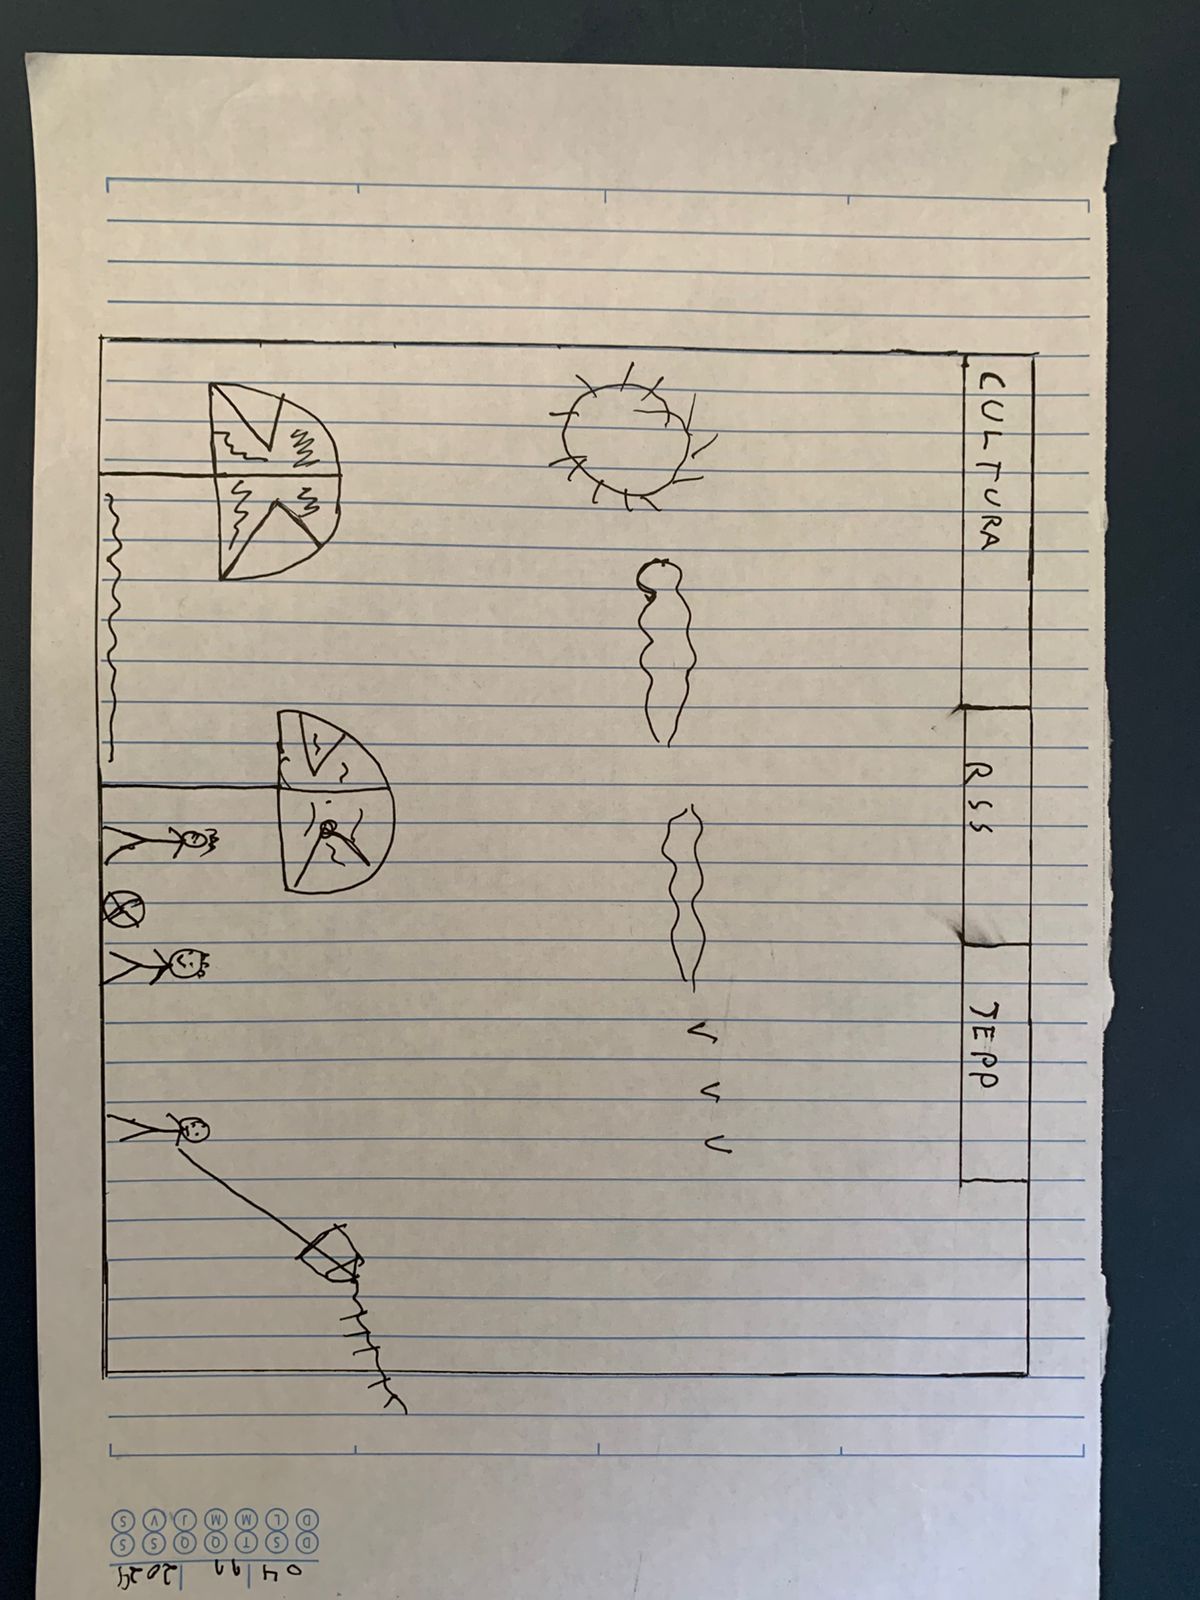 CULTURA RSS JEPP
04/11/2024
D S T Q Q S S
D L M M J V S